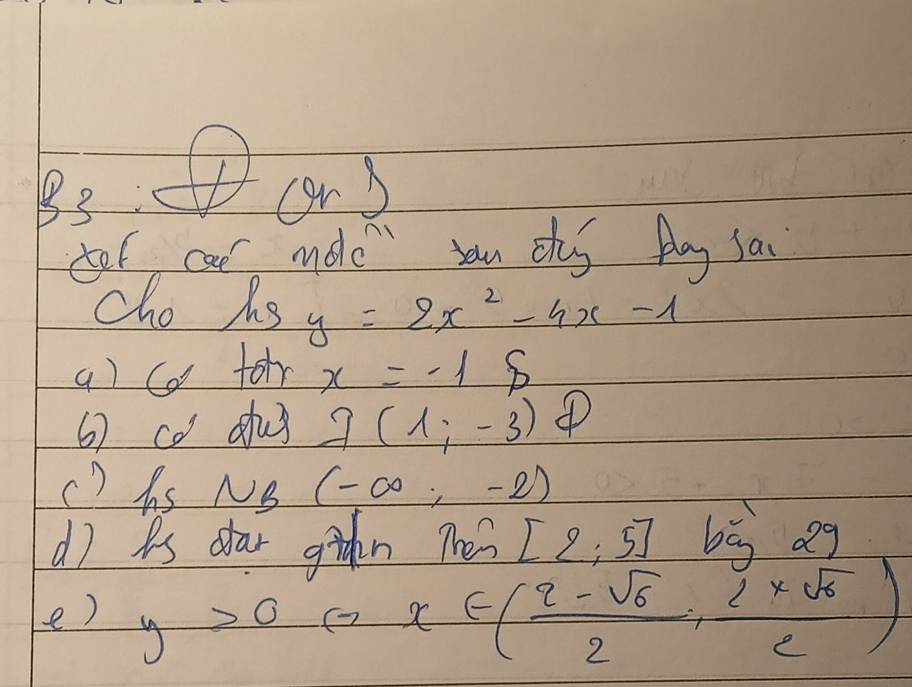 B3 : Đ (or S)
xét các mđề sau đúng hay sai
Cho hs y = 2x² - 4x - 1
a) Có tđtx x = -1 S
b) có đỉnh I (1; -3) Đ
c) hs NB (-∞; -2)
d) hs đạt gtln trên [2; 5] bằng 29
e) y > 0 ⇔ x ∈ (\frac{2 - √6}{2}; \frac{2 + √6}{2})